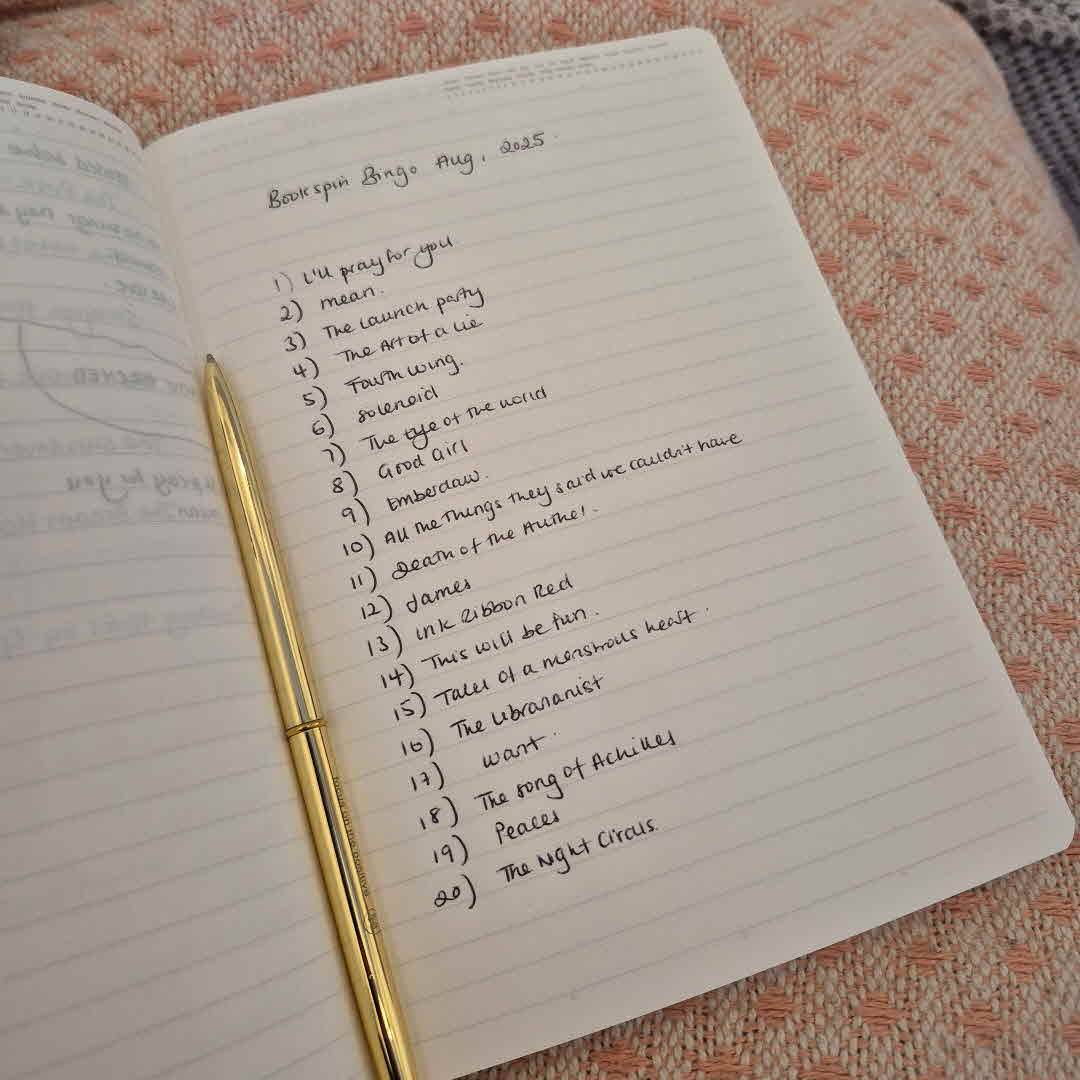 Bookspin Bingo Aug, 2025.
1) I'll pray for you
2) mean.
3) The Launch party
4) The Art of a Lie
5) Fourth wing.
6) solenoid
7) The Eye of the world
8) Good Girl
9) Emberclaw.
10) All the Things they said we couldn't have
11) Death of the Author.
12) James
13) Ink Ribbon Red
14) This will be fun.
15) Tales of a monstrous heart.
16) The Librarianist
17) Want.
18) The song of Achilles
19) Peaces
20) The Night Circus.
focus on the positive